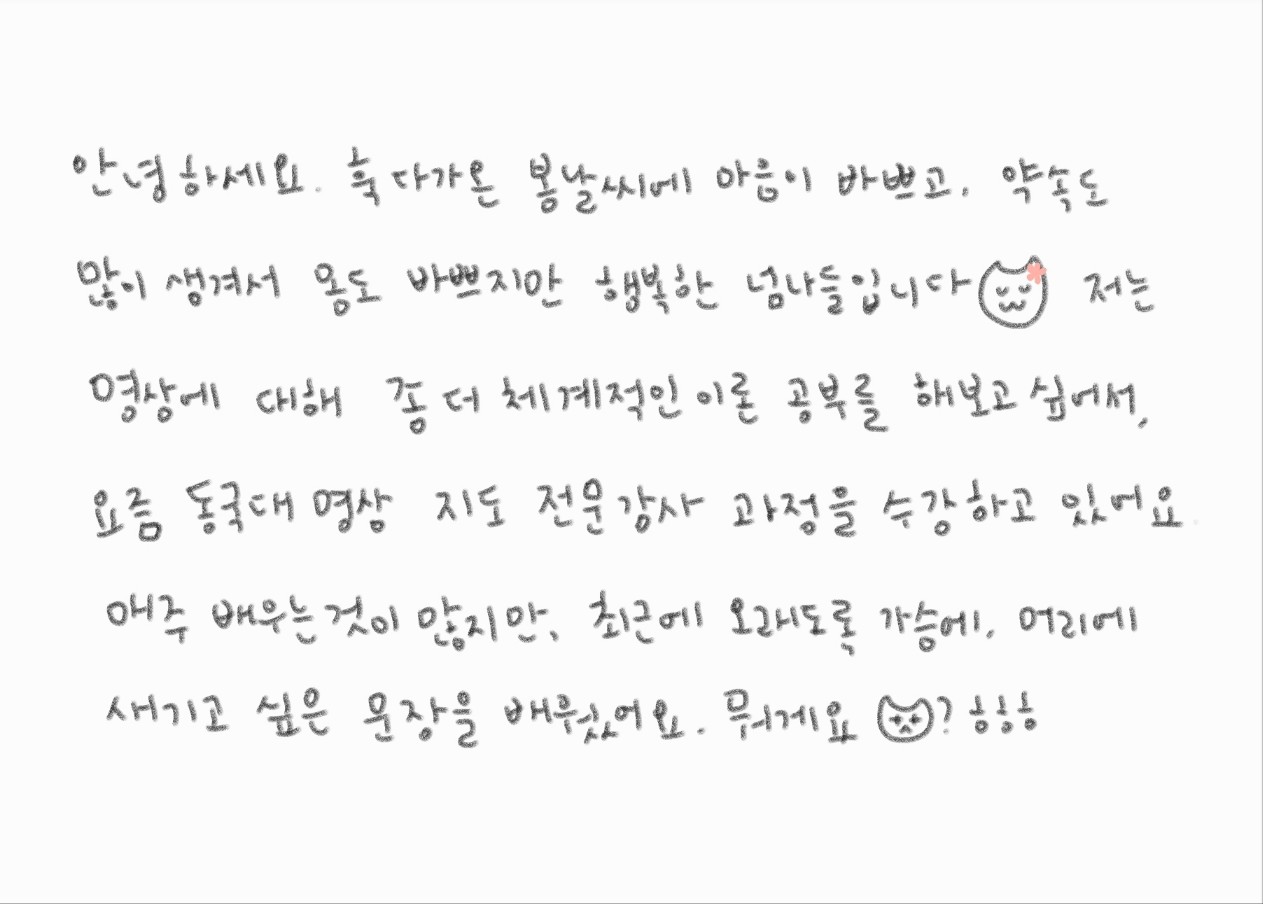 안녕하세요. 훅 다가온 봄날씨에 마음이 바쁘고, 약속도
많이 생겨서 몸도 바쁘지만 행복한 넘나들입니다 저는
명상에 대해 좀 더 체계적인 이론 공부를 해보고 싶어서,
요즘 동국대 명상 지도 전문강사 과정을 수강하고 있어요.
매주 배우는것이 많지만, 최근에 오래도록 가슴에, 머리에
새기고 싶은 문장을 배웠어요. 뭐게요 ? ㅎㅎㅎ